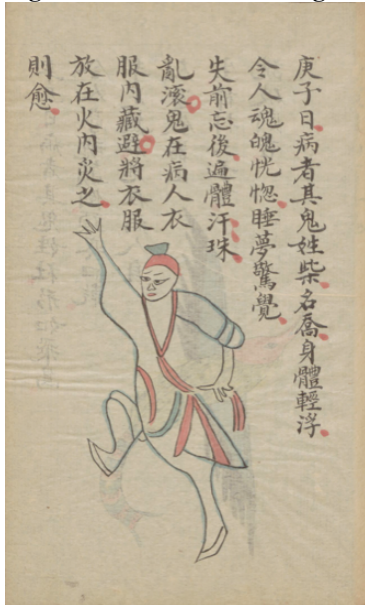 庚子日病者其鬼姓柴名喬身體輕浮
令人魂魄恍惚睡夢驚覺
失前忘後遍體汗珠
亂滾鬼在病人衣
服内藏避將衣服
放在火内炎之
則愈